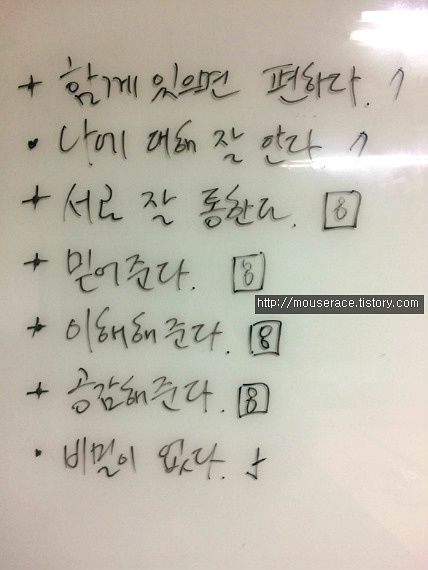 + 함께 있으면 편하다. ↑
• 나에 대해 잘 안다 ↑
+ 서로 잘 통한다. 8
+ 믿어준다. 8
http://mouserace.tistory.com
+ 이해해준다. 8
+ 공감해준다. 8
• 비밀이 없다.